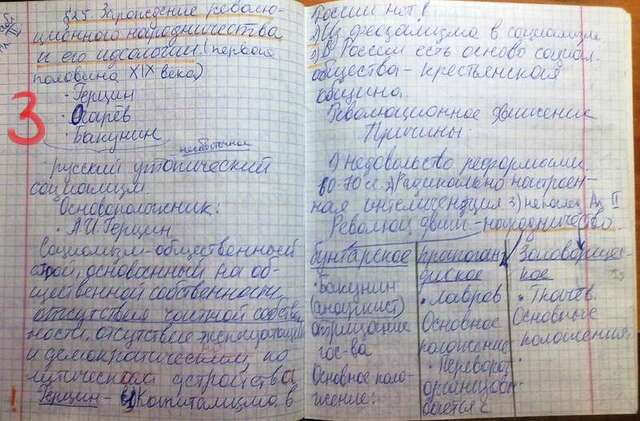 §25 Зарождение револю-
ционного народничества
и его идеологии (первая
половина XIX века)
3
• Герцин
• Огарёв
• Бакунин
Русский утопический
социализм
Основоположник:
• А.И. Герцин
Социализм - общественный
строй, основанный на об-
щественной собственности,
отсутствие частной собств
ности, отсутствие эксплуатации
и демократическом по
литическом устройства
Герцин - 1) Капитализма в
России нет!
2) Из феодализма в социализм
3) В России есть основа социал.
общества - крестьянская
община.
Революционное движение
Причины:
1) недовольство реформами
60-70 гг. 2) Радикально настроен-
ная интеллигенция 3)
Революц. движ. - народничество
бунтарское
• Бакунин
(анархист)
отрицание
гос-ва
Основное поло-
жение:
пропаган-
дисское
• Лавров
Основное
положение
• Переворот
Заговорщес-
кое
• Ткачёв.
Основные
положения:
!